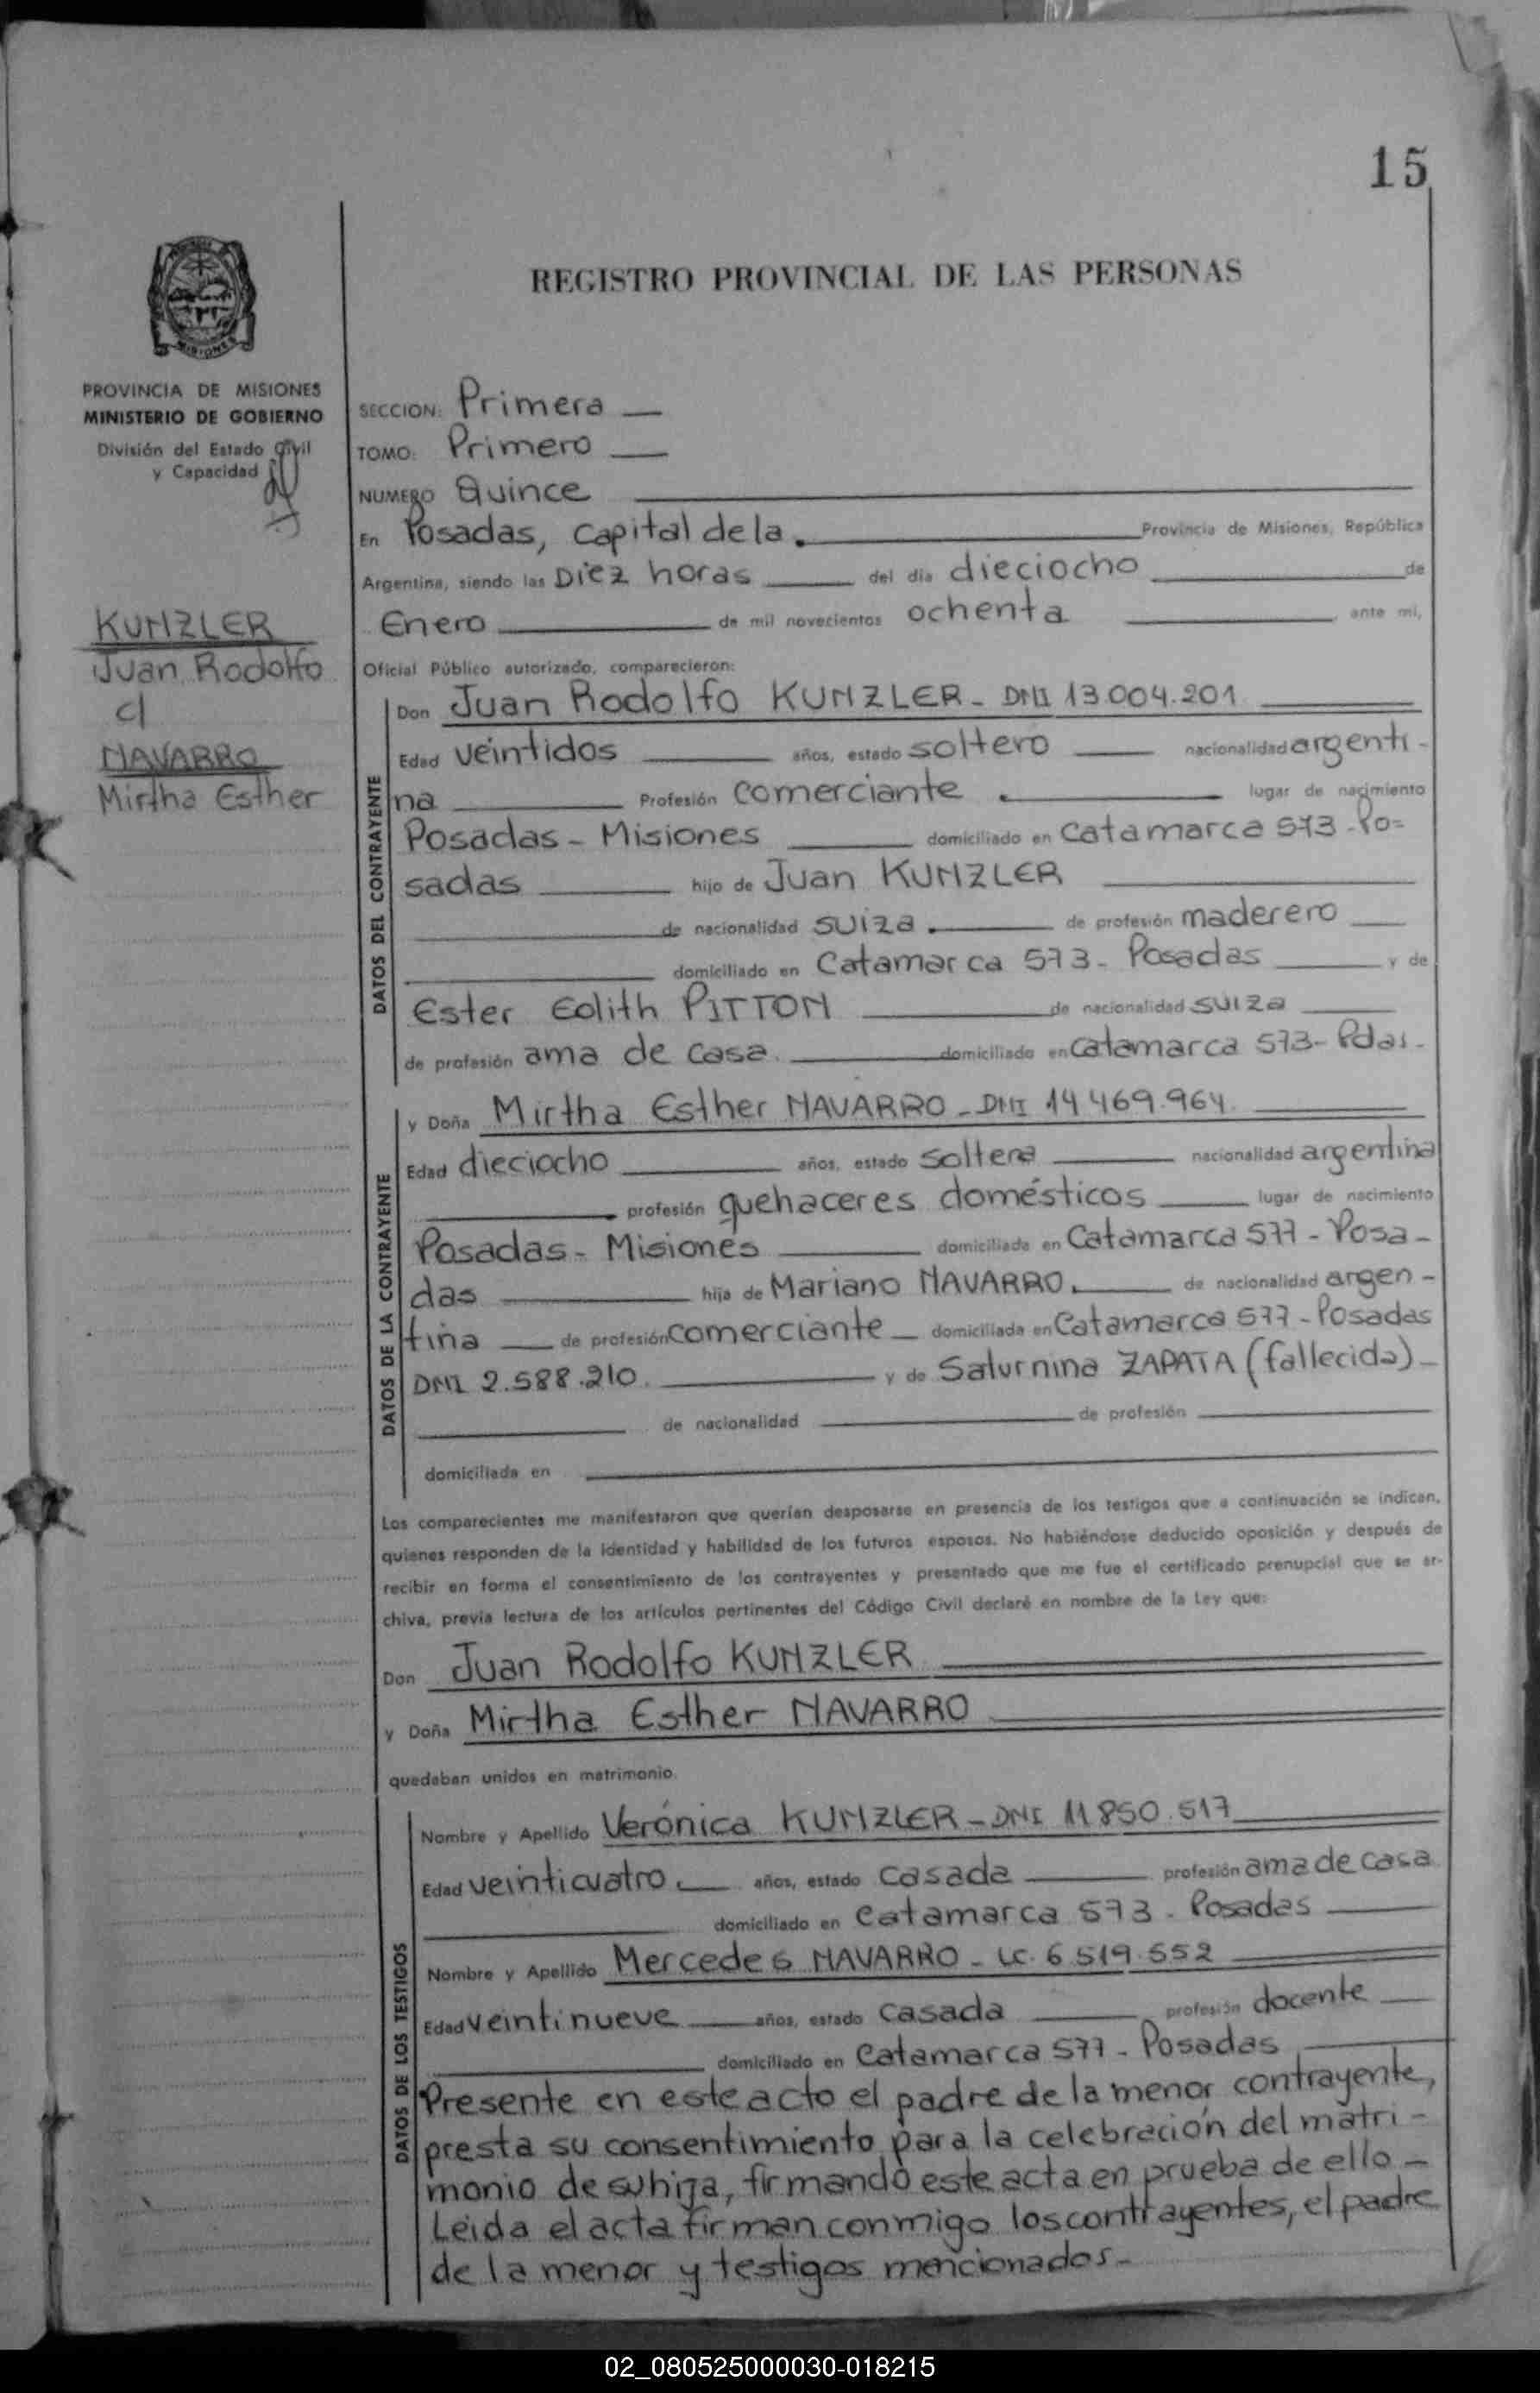 15
REGISTRO PROVINCIAL DE LAS PERSONAS
MISIONES
PROVINCIA DE MISIONES
MINISTERIO DE GOBIERNO
División del Estado Civil
y Capacidad
KUNZLER
Juan Rodolfo
c/
NAVARRO
Mirtha Esther
SECCION: Primera
TOMO: Primero
NUMERO Quince
En Posadas, capital de la. Provincia de Misiones, República
Argentina, siendo las Diez horas del dia dieciocho de
Enero de mil novecientos ochenta ante mi,
Oficial Público autorizado, comparecieron:
DATOS DEL CONTRAYENTE
Don Juan Rodolfo KUNZLER - DNI 13.004.201
Edad veintidos años, estado soltero nacionalidad argenti-
na Profesión comerciante . lugar de nacimiento
Posadas - Misiones domiciliado en Catamarca 573 - Po=
sadas hijo de Juan KUNZLER
de nacionalidad suiza . de profesión maderero
domiciliado en Catamarca 573 - Posadas y de
Ester Edith PITTON de nacionalidad suiza
de profesión ama de casa. domiciliada en Catamarca 573 - Pdas.
DATOS DE LA CONTRAYENTE
y Doña Mirtha Esther NAVARRO - DNI 14.469.964.
Edad dieciocho años, estado soltera nacionalidad argentina
profesión quehaceres domésticos lugar de nacimiento
Posadas - Misiones domiciliada en Catamarca 577 - Posa-
das hija de Mariano NAVARRO. de nacionalidad argen-
tina de profesión comerciante domiciliada en Catamarca 577 - Posadas
DNI 2.588.210. y de Saturnina ZAPATA (fallecida)
de nacionalidad de profesión
domiciliada en
Los comparecientes me manifestaron que querían desposarse en presencia de los testigos que a continuación se indican,
quienes responden de la identidad y habilidad de los futuros esposos. No habiéndose deducido oposición y después de
recibir en forma el consentimiento de los contrayentes y presentado que me fue el certificado prenupcial que se ar-
chiva, previa lectura de los artículos pertinentes del Código Civil declaré en nombre de la Ley que:
Don Juan Rodolfo KUNZLER
y Doña Mirtha Esther NAVARRO
quedaban unidos en matrimonio.
DATOS DE LOS TESTIGOS
Nombre y Apellido Verónica KUNZLER - DNI 11.850.517
Edad veinticuatro . años, estado casada profesión ama de casa
domiciliado en Catamarca 573 - Posadas
Nombre y Apellido Mercedes NAVARRO - LC. 6.519.552
Edad veintinueve años, estado casada profesión docente
domiciliado en Catamarca 577 - Posadas
Presente en este acto el padre de la menor contrayente,
presta su consentimiento para la celebración del matri-
monio de su hija, firmando este acta en prueba de ello -
Leida el acta firman conmigo los contrayentes, el padre
de la menor y testigos mencionados.-
02_080525000030-018215